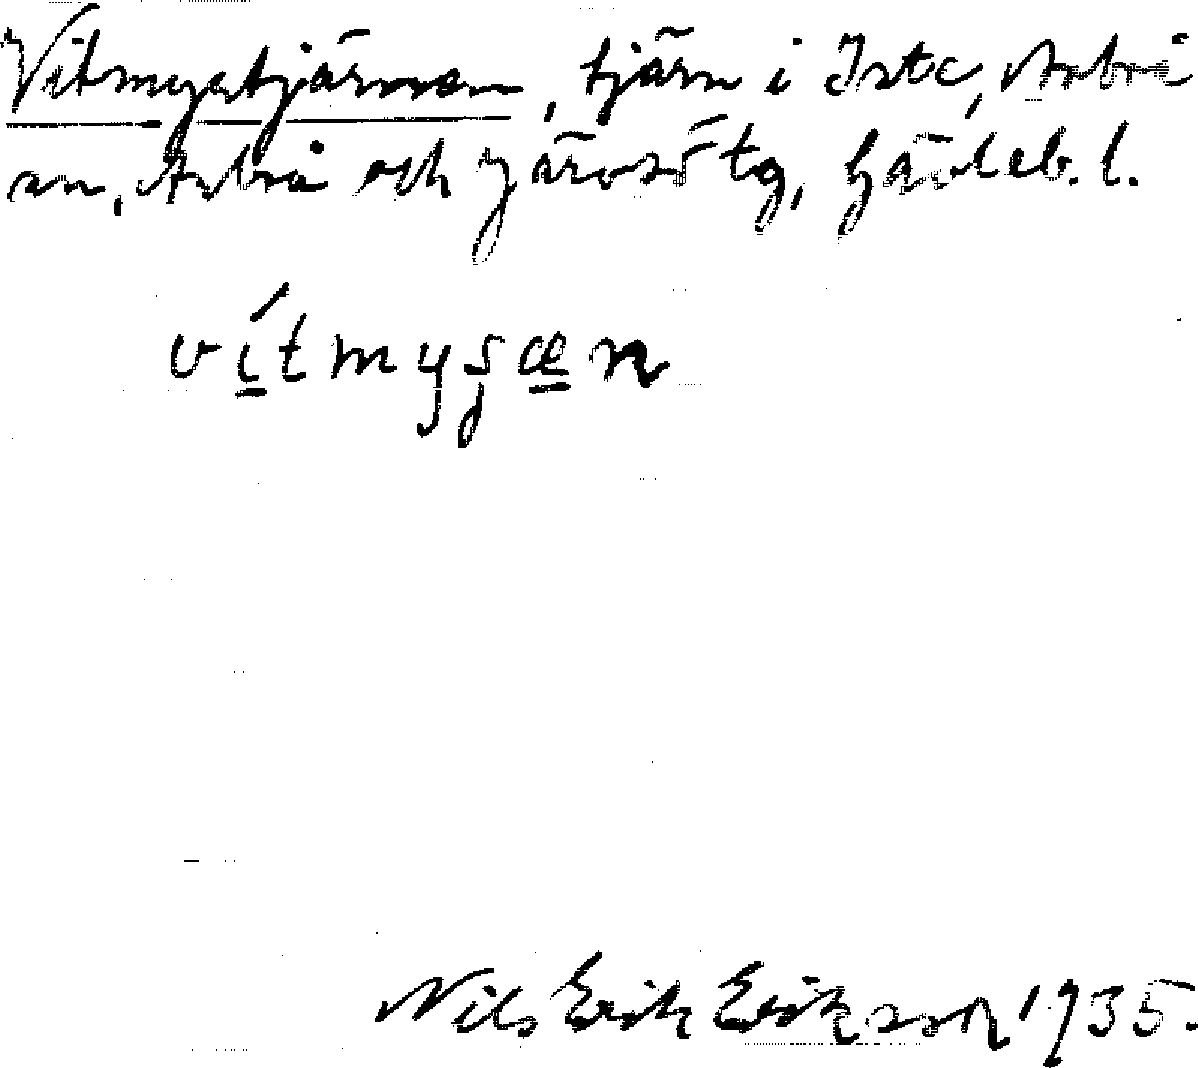 Vitmyrtjärnen, tjärn i Iste, Arbrå
sn, Arbrå och Järvsö tg, Gävleb. l.
vítmyʂæn
Nils Erik Eriksson 1935.